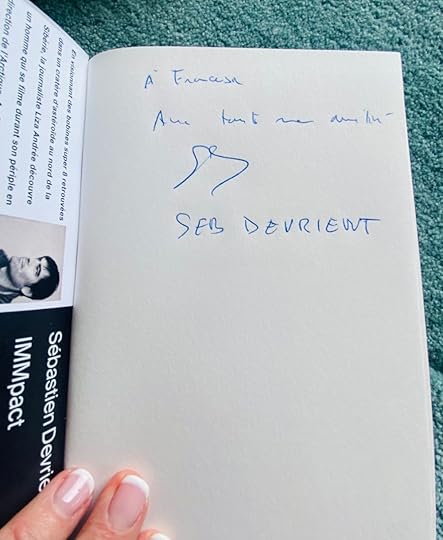 En visionnant des bobines super 8 retrouvées
dans un cratère d'astéroïde au nord de la
Sibérie, la journaliste Liza Andrée découvre
un homme qui se filme durant son périple en
direction de l'Arctique.
Sébastien Devrie
IMMpact
À Francesca
Avec toute mon amitié
SEB DEVRIENT